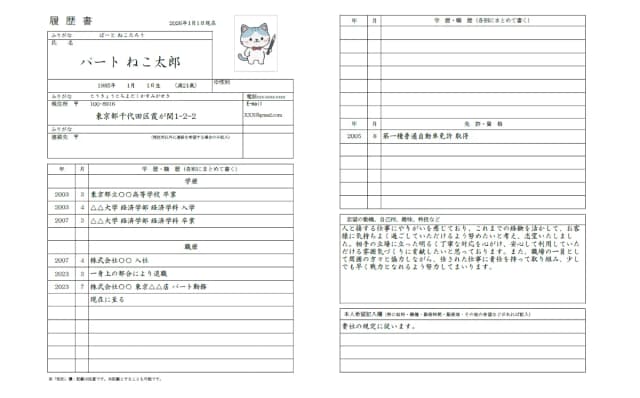 履歴書
2026年1月1日現在
ふりがな ぱーと ねこたろう
氏 名
パート ねこ太郎
1985年 1月 1日生
※性別
ふりがな とうきょうとちよだくかすみがせき
現住所 〒 100-8916
東京都千代田区霞が関1-2-2
電話xxx-xxxx-xxxx
E-mail
XXX@gmail.com
ふりがな
連絡先 〒 (現住所以外に連絡を希望する場合のみ記入)
年 月 学 歴・職 歴 (各別にまとめて書く)
学歴
2003 3 東京都立〇〇高等学校 卒業
2003 4 △△大学 経済学部 経済学科 入学
2007 3 △△大学 経済学部 経済学科 卒業
職歴
2007 4 株式会社〇〇 入社
2023 3 一身上の都合により退職
2023 7 株式会社〇〇 東京△△店 パート勤務
現在に至る
※「性別」欄:記載は任意です。未記載とすることも可能です。
年 月 学 歴・職 歴 (各別にまとめて書く)
年 月 免 許・資 格
2005 8 第一種普通自動車免許 取得
志望の動機、自己PR、趣味、特技など
人と接する仕事にやりがいを感じており、これまでの経験を活かして、お客
様に気持ちよく過ごしていただけるよう努めたいと考え、志望いたしまし
た。相手の立場に立った明るく丁寧な対応を心がけ、安心して利用していた
だける雰囲気づくりに貢献したいと思っております。また、職場の一員とし
て周囲の方々と協力しながら、任された仕事に責任を持って取り組み、少し
でも早く戦力となれるよう努力してまいります。
本人希望記入欄 (特に給料・職種・勤務時間・勤務地・その他の希望などがあれば記入)
貴社の規定に従います。